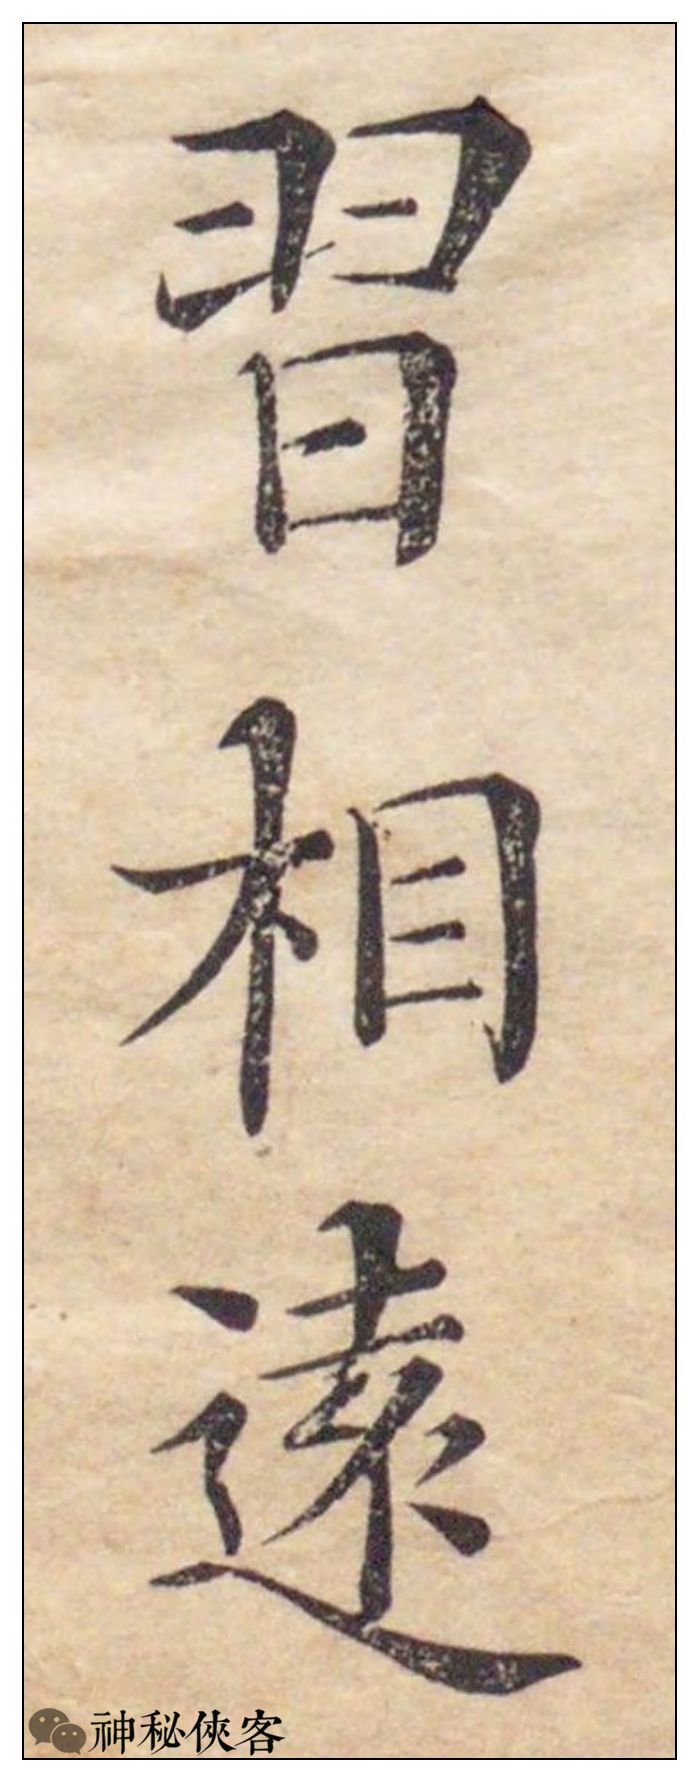 習相遠
神秘俠客